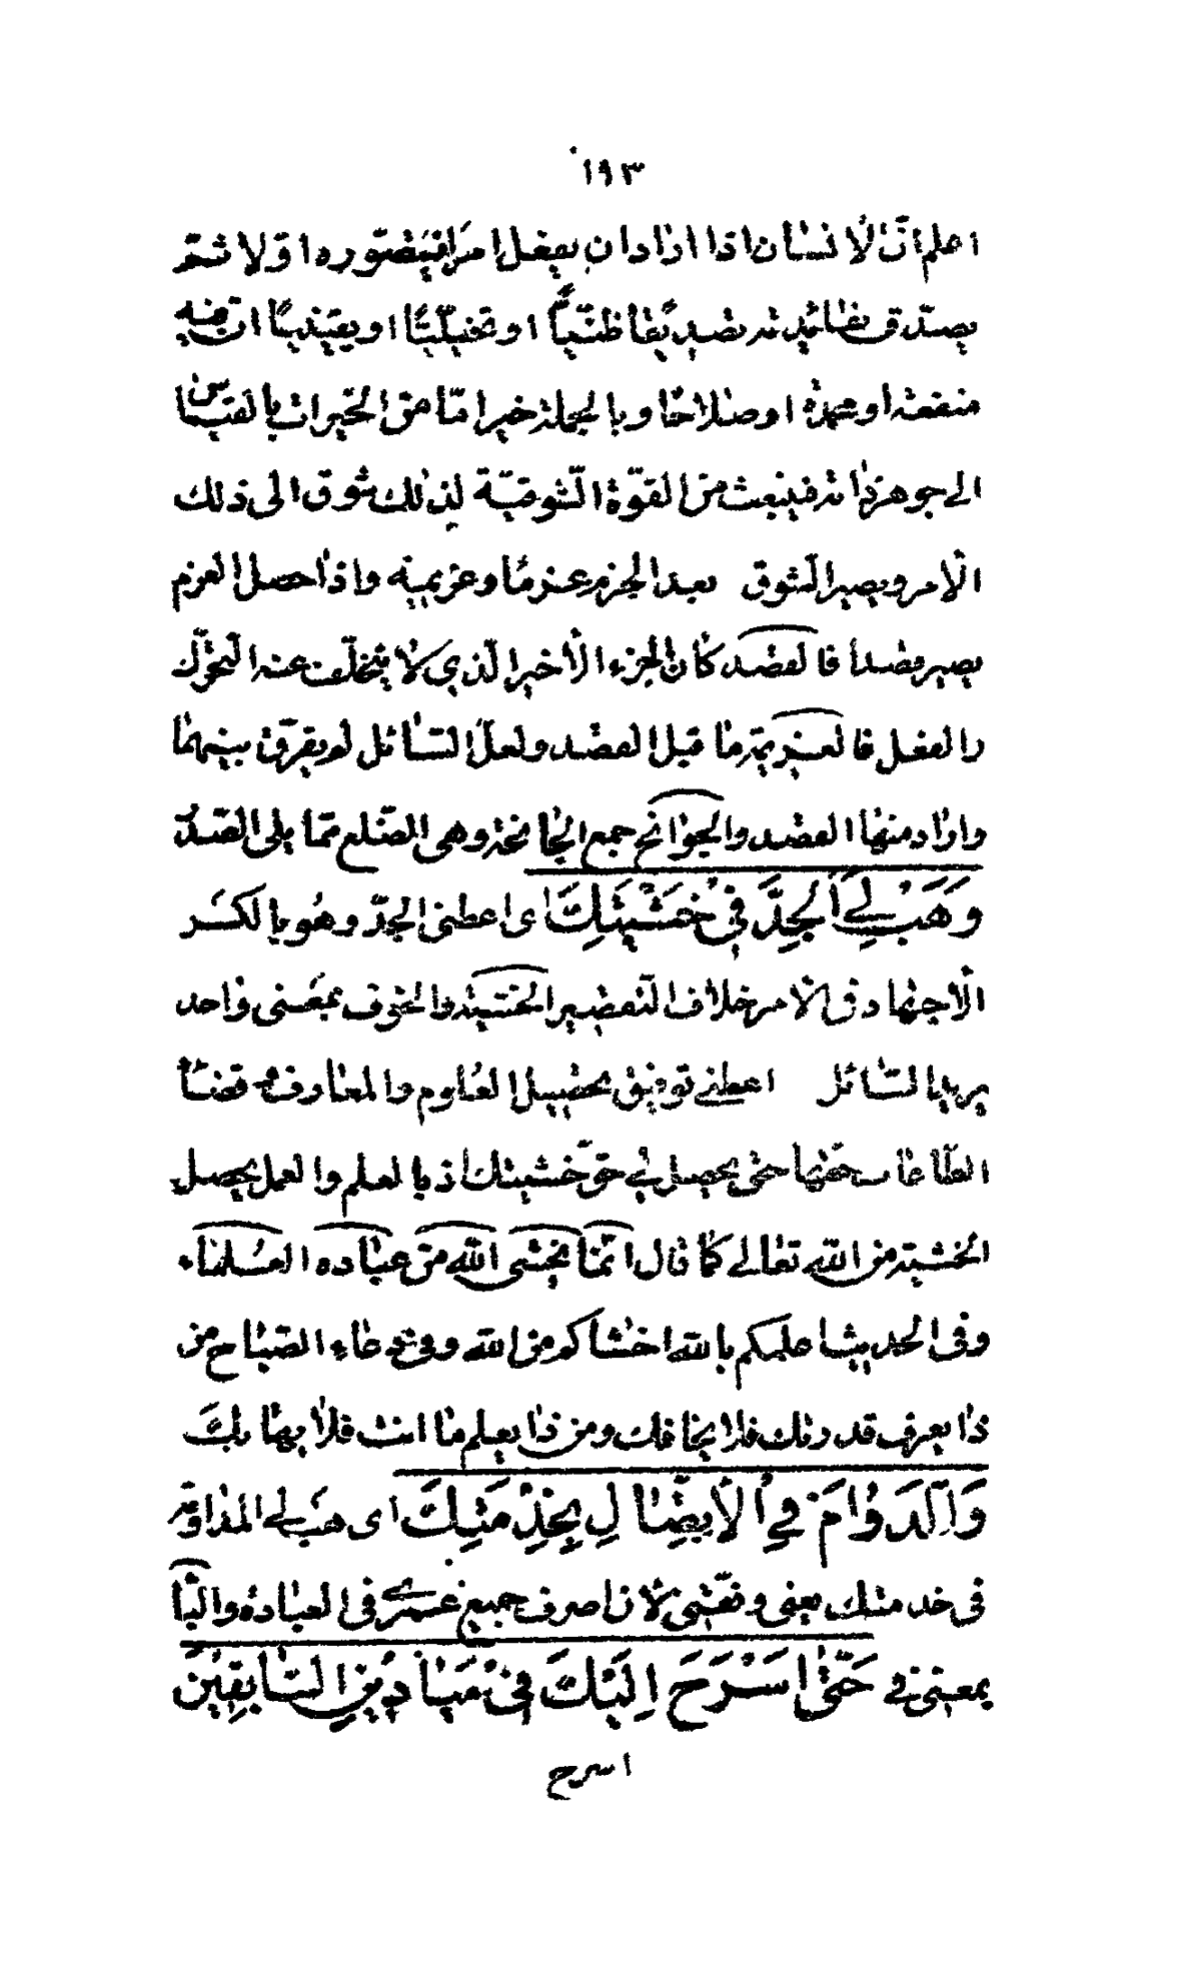 ١٩٣
اعلم انّ الأنسان اذا اراد ان يفعل امرا فيتصوّره اوّلا ثمّ
يصدّق بفائدته تصديقا ظنّيّا او تخيليّا او يقينيا انّ فيه
منفعة او محمدة او صلاحا وبالجملة خيرا مّا من الخيرات بالقياس
الى جوهر ذاته فينبعث من القوّة الشّوقيّة لذلك شوق الى ذلك
الأمر ويصير الشوق بعد الجزم عزما وعزيمية واذا حصل العزم
يصير قصدا فالقصد كان الجزء الأخير الّذي لا يتخلّف عنه التحرّك
والفعل فالعزيمة ما قبل القصد ولعلّ السّائل لم يفرّق بينهما
واراد منها القصد والجوانح جمع الجانحة وهى الضّلع ممّا يلى الصّدر
وَهَبْ لِيَ الْجِدَّ فِي خَشْيَتِكَ اى اعطنى الجدّ وهو بالكسر
الأجتهاد فى الامر خلاف التّقصير الخشية والخوف بمعنى واحد
يريد السّائل اعطنى توفيق تحصيل العلوم والمعارف وقضاء
الطّاعات حقّها حتى يحصل لي حقّ خشيتك اذ بالعلم والعمل يحصل
الخشية من الله تعالى كما قال انّما يخشى الله من عباده العلماء
وفى الحديث اعلمكم بالله اخشاكم من الله وفى دعاء الصّباح من
ذا يعرف قدرتك فلا يخافك ومن ذا يعلم ما انت فلا يهابك
وَالدَّوَامَ فِي الْأِتِّصَالِ بِخِدْمَتِكَ اى هب لى المداومة
فى خدمتك يعنى وفّقنى لان اصرف جميع عمرى فى العبادة والبا
بمعنى فى حَتّىٰ اَسْرَحَ اِلَيْكَ فِى مَيَادِينِ السّابِقِينَ
اسرح